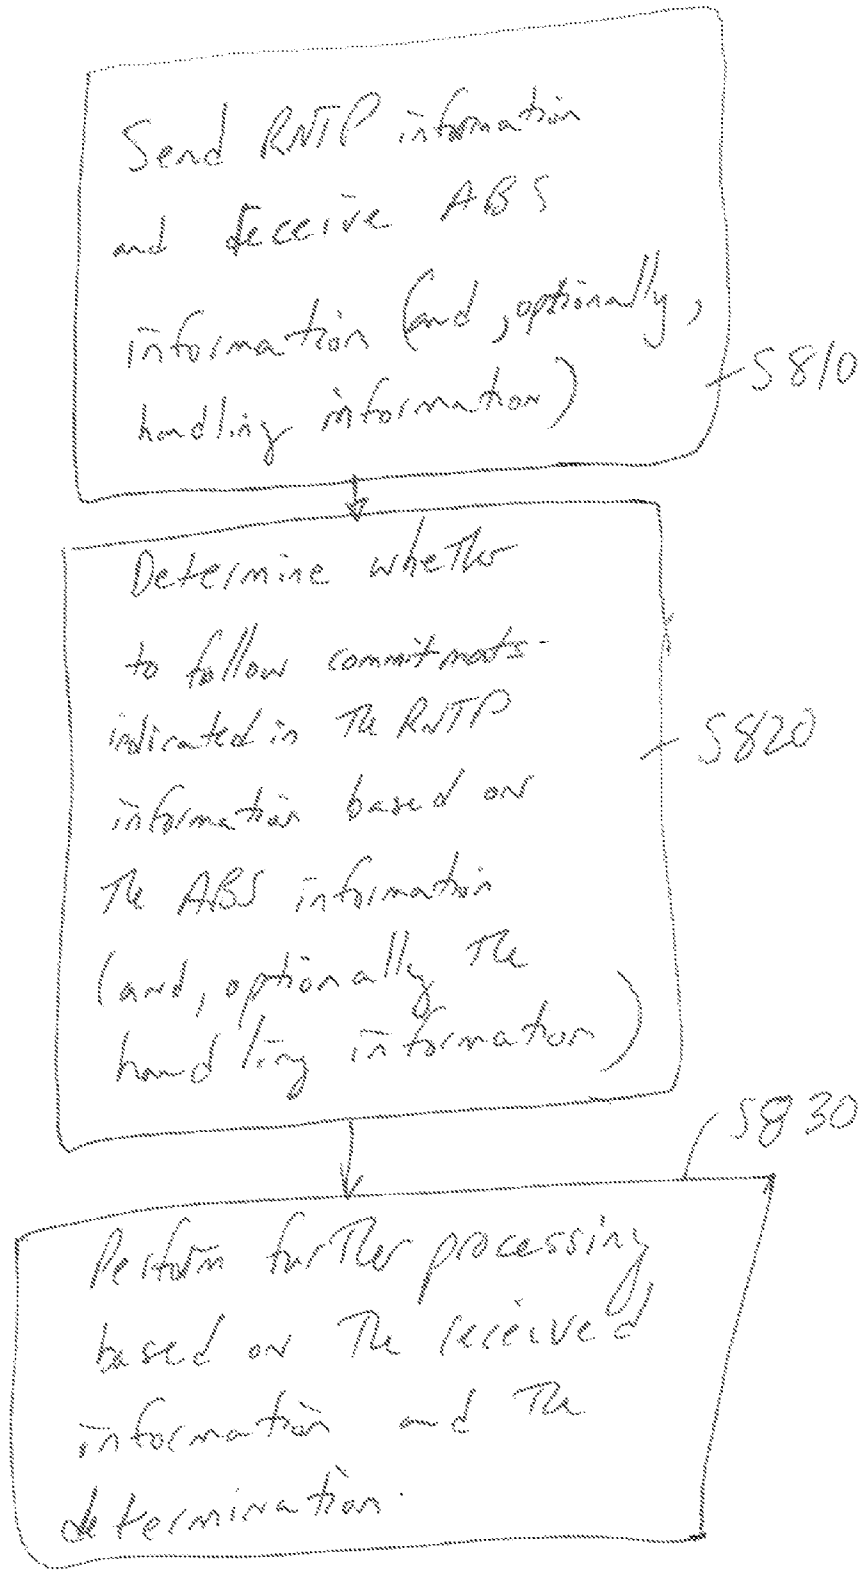 Send RNTP information
and receive ABS
information (and, optionally,
handling information)
S810
Determine whether
to follow commitments
indicated in the RNTP
information based on
the ABS information
(and, optionally the
handling information)
S820
S830
Perform further processing
based on the received
information and the
determination.